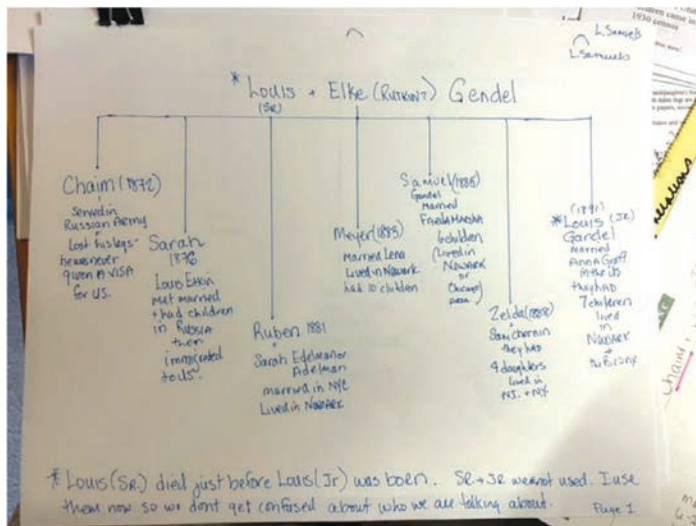 L. Samuels
L. Samuels
* Louis + Elke (Rutkint) Gendel
(SR)
Chaim (1872)
Served in
Russian Army
Lost his legs-
he was never
given a VISA
for US.
Sarah
1876
Louis Etkin
met married
+ had children
in RUSSIA
then
immigrated
to US.
Ruben 1881
Sarah Edelman or
Adelman
married in NYC
Lived in Newark
Meyer (1883)
married Lena
Lived in Newark
had 10 children
Samuel (1885)
Gandel
married
Frieda
6 children
(Lived in
Newark
or
Chicago
area)
Zelda (1888)
Sam Chernin
they had
4 daughters
lived in
NJ. + NY.
(1891)
* Louis (JR)
Gandel
married
Anna Groff
in the US
they had
7 children
lived
in
Newark
+
the Bronx
* Louis (SR.) died just before Louis (Jr) was born. SR + JR were not used. I use
them now so we dont get confused about who we are talking about.
Page 1
1930 census
Chaim